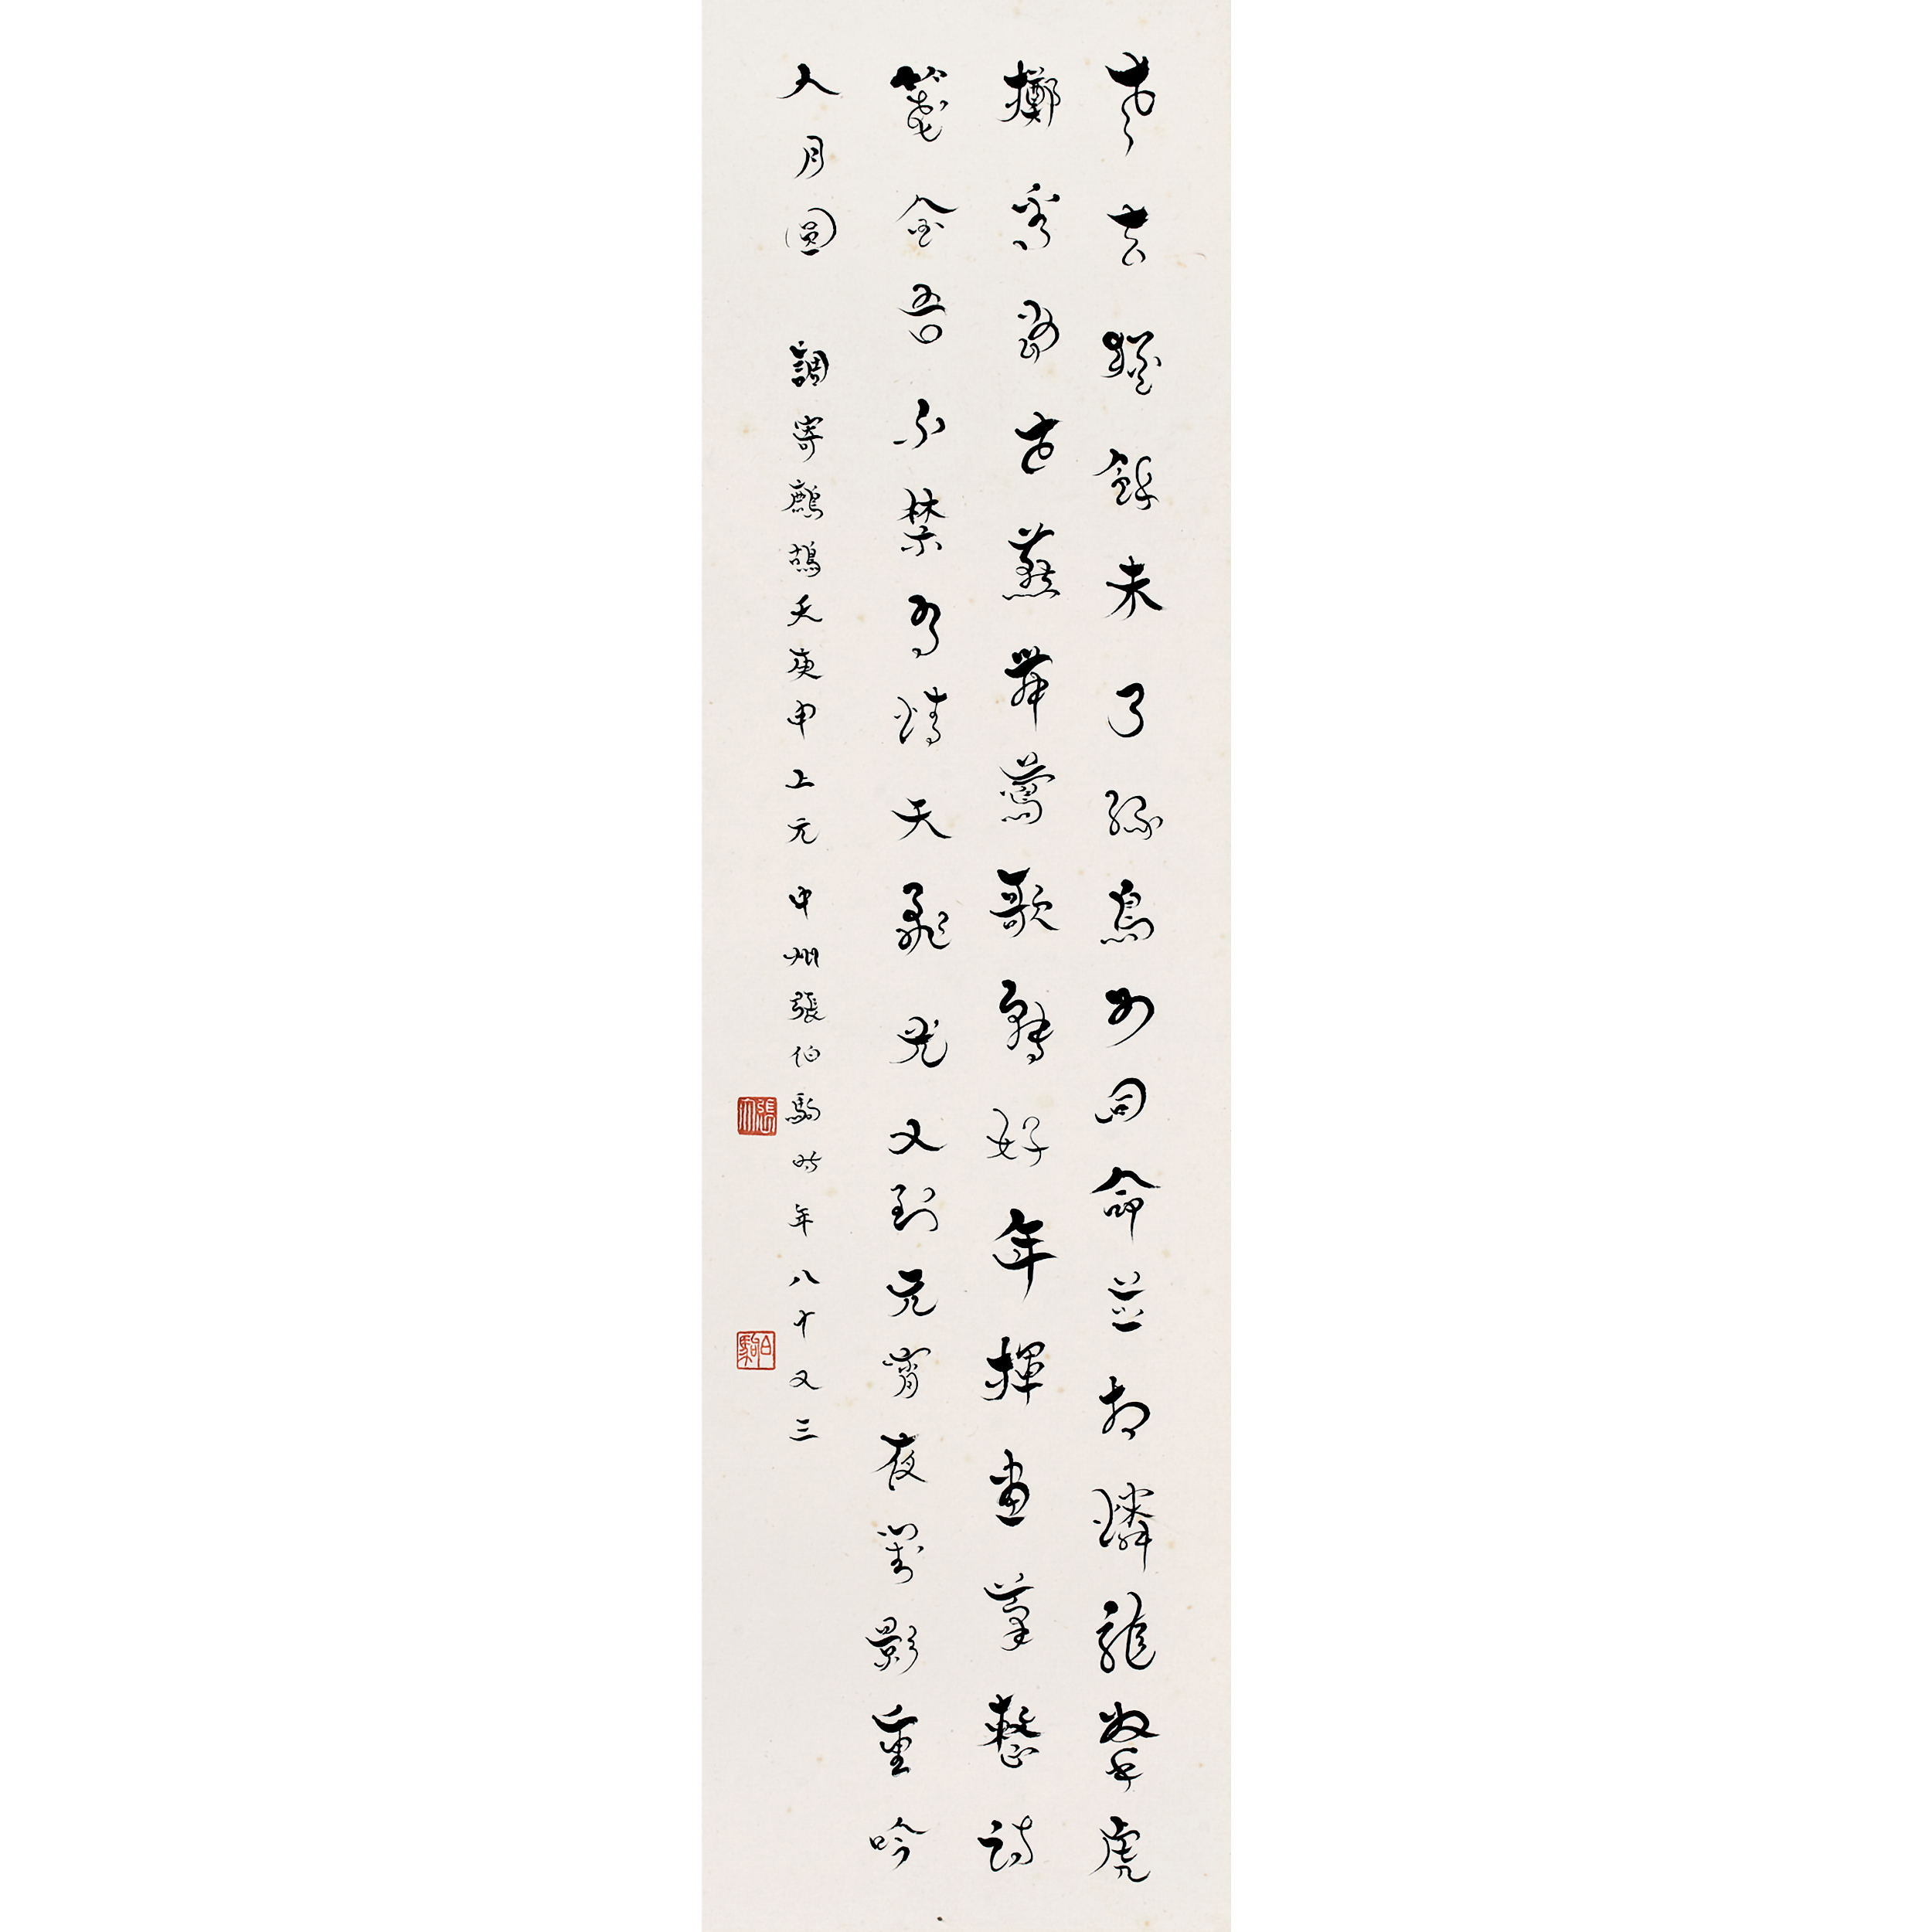 老去猶餘未了緣鳥如同命並相憐龍拏虎
擲看古燕舞鶯歌好年揮畫筆整詩
箋金吾不禁有情天飛光又到元宵夜對影重吟
人月圓 調寄鷓鴣天庚申上元 中州張伯駒時年八十又三
伯駒